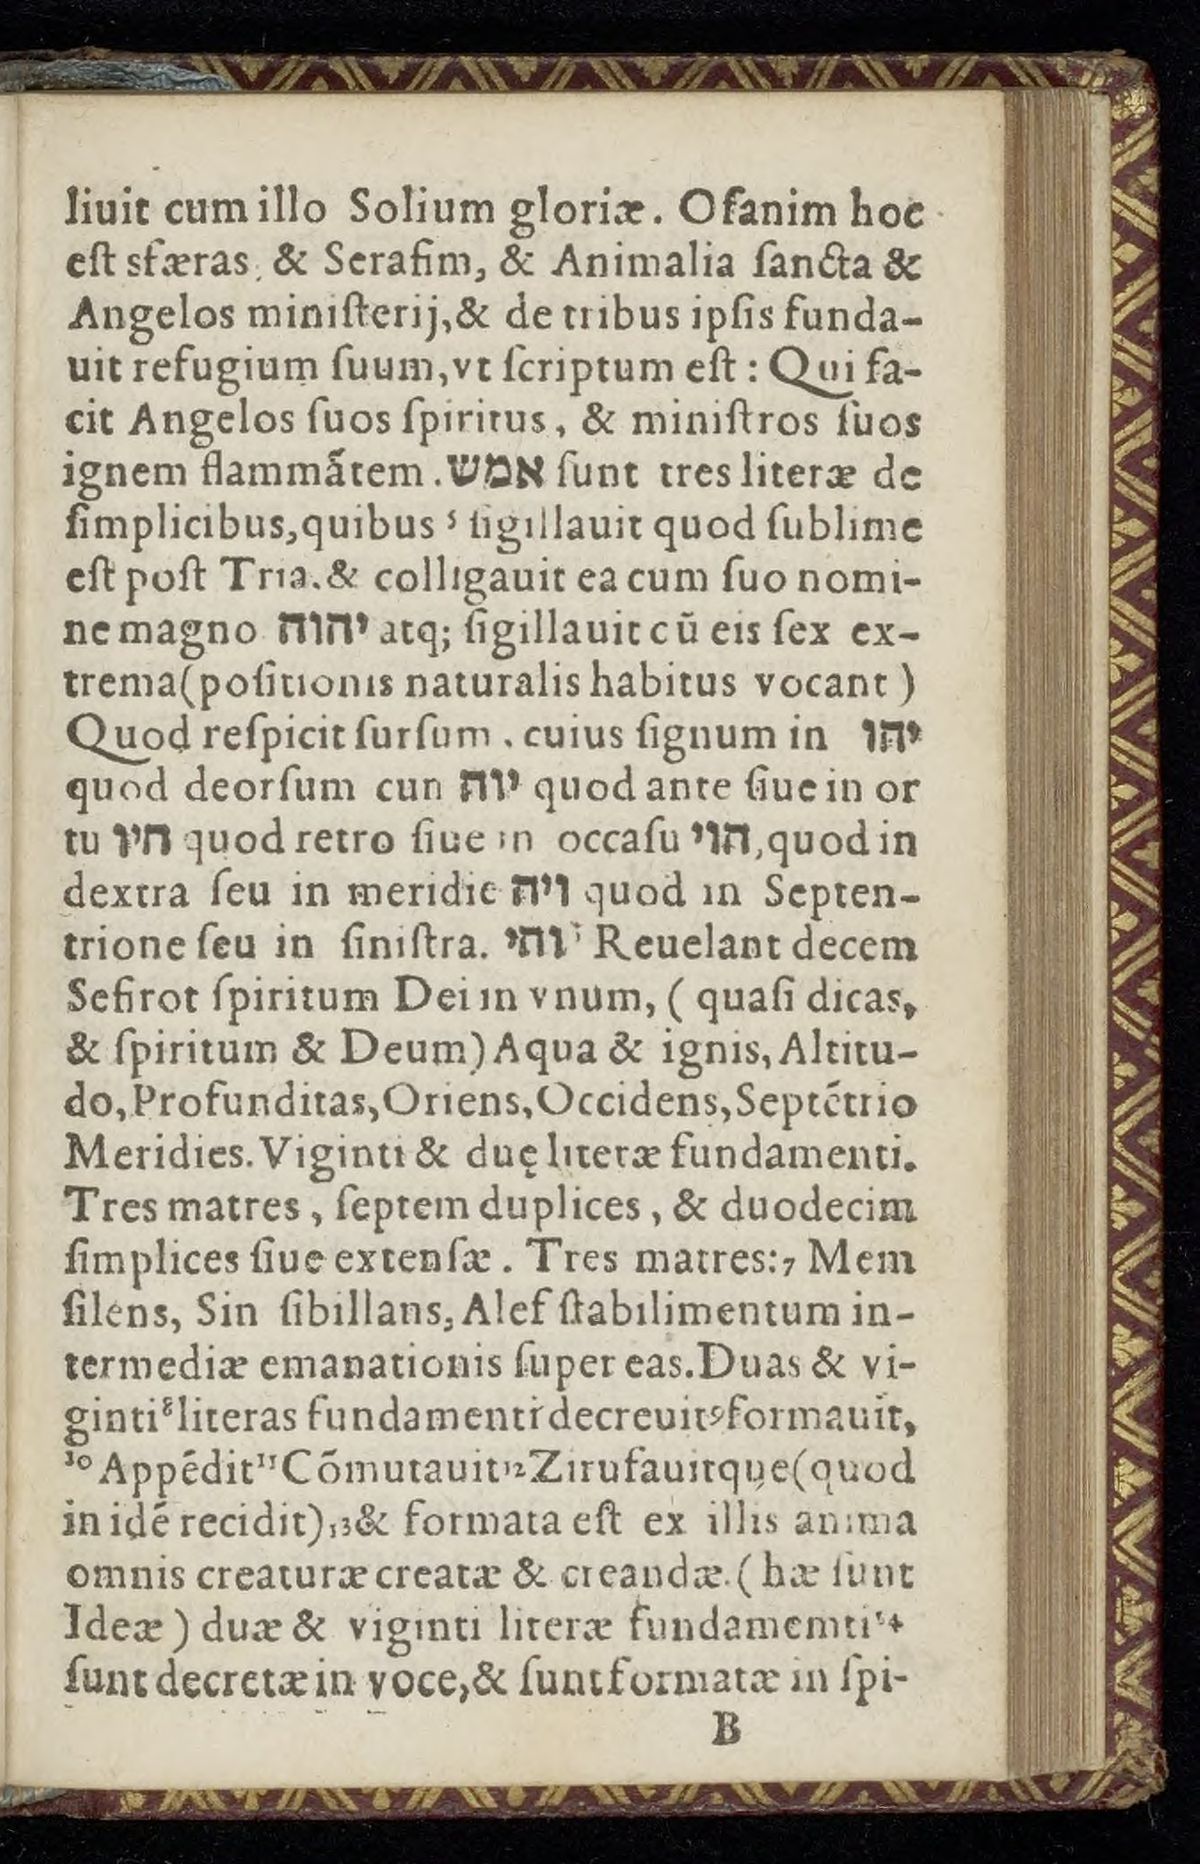 liuit cum illo Solium gloriæ. Ofanim hoc
eſt sfæras, & Serafim, & Animalia ſancta &
Angelos miniſterij,& de tribus ipſis funda-
uit refugium ſuum,vt ſcriptum eſt : Qui fa-
cit Angelos ſuos ſpiritus, & miniſtros ſuos
ignem flammãtem. אמש ſunt tres literæ de
ſimplicibus,quibus ⁵ ſigillauit quod ſublime
eſt poſt Tria.& colligauit ea cum ſuo nomi-
ne magno יהוה atq; ſigillauit cũ eis ſex ex-
trema(poſitionis naturalis habitus vocant)
Quod reſpicit ſurſum. cuius ſignum in יהו
quod deorſum cun יוה quod ante ſiue in or
tu היו quod retro ſiue in occaſu הוי,quod in
dextra ſeu in meridie ויה quod in Septen-
trione ſeu in ſiniſtra. והי Reuelant decem
Sefirot ſpiritum Dei in vnum, ( quaſi dicas,
& ſpiritum & Deum) Aqua & ignis, Altitu-
do,Profunditas,Oriens,Occidens,Septẽtrio
Meridies. Viginti & duę literæ fundamenti.
Tres matres, ſeptem duplices, & duodecim
ſimplices ſiue extenſæ. Tres matres:₇ Mem
ſilens, Sin ſibillans, Alef ſtabilimentum in-
termediæ emanationis ſuper eas.Duas & vi-
ginti⁸literas fundamenti decreuit⁹formauit,
¹⁰ Appẽdit¹¹ Cõmutauit¹²Zirufauitque(quod
in idẽ recidit)₁₃& formata eſt ex illis anima
omnis creaturæ creatæ & creandæ.( hæ ſunt
Ideæ ) duæ & viginti literæ fundamemti¹⁴
ſunt decretæ in voce,& ſunt formatæ in ſpi-
B